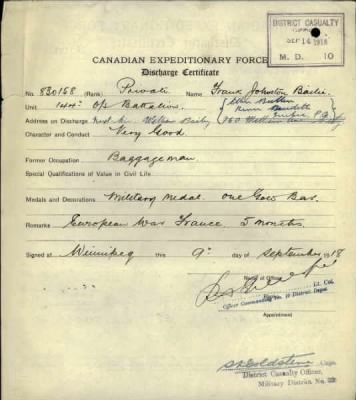 DISTRICT CASUALTY
SEP 14 1918
M. D. 10
CANADIAN EXPEDITIONARY FORCE
Discharge Certificate
No. 830158 (Rank) Private Name Frank Johnston
Unit 144th O/s Battalion.
Address on Discharge
Character and Conduct Very Good.
Former Occupation Baggageman
Special Qualifications of Value in Civil Life.
Medals and Decorations Military Medal. one Gold Bar.
Remarks European War France. 5 months.
Signed at Winnipeg this 9th day of September 1918
Name of Officer
Lt. Col.
Officer Commanding No. 10 District Depot
Appointment
Goldstine Capt.
District Casualty Officer,
Military District No. 10